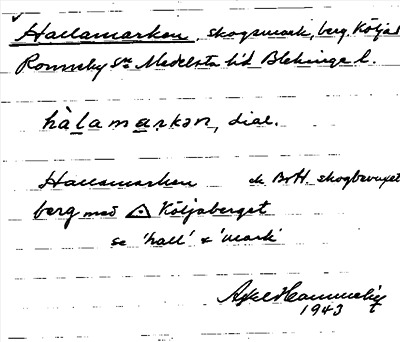 Hallamarken, skogsmark, berg Köljab
Ronneby sn Medelsta hd Blekinge l.
hàlamarkən, dial.
Hallamarken ek BrH. skogbevuxet
berg med △ Köljaberget
se 'hall' & 'mark'
Axel
1943